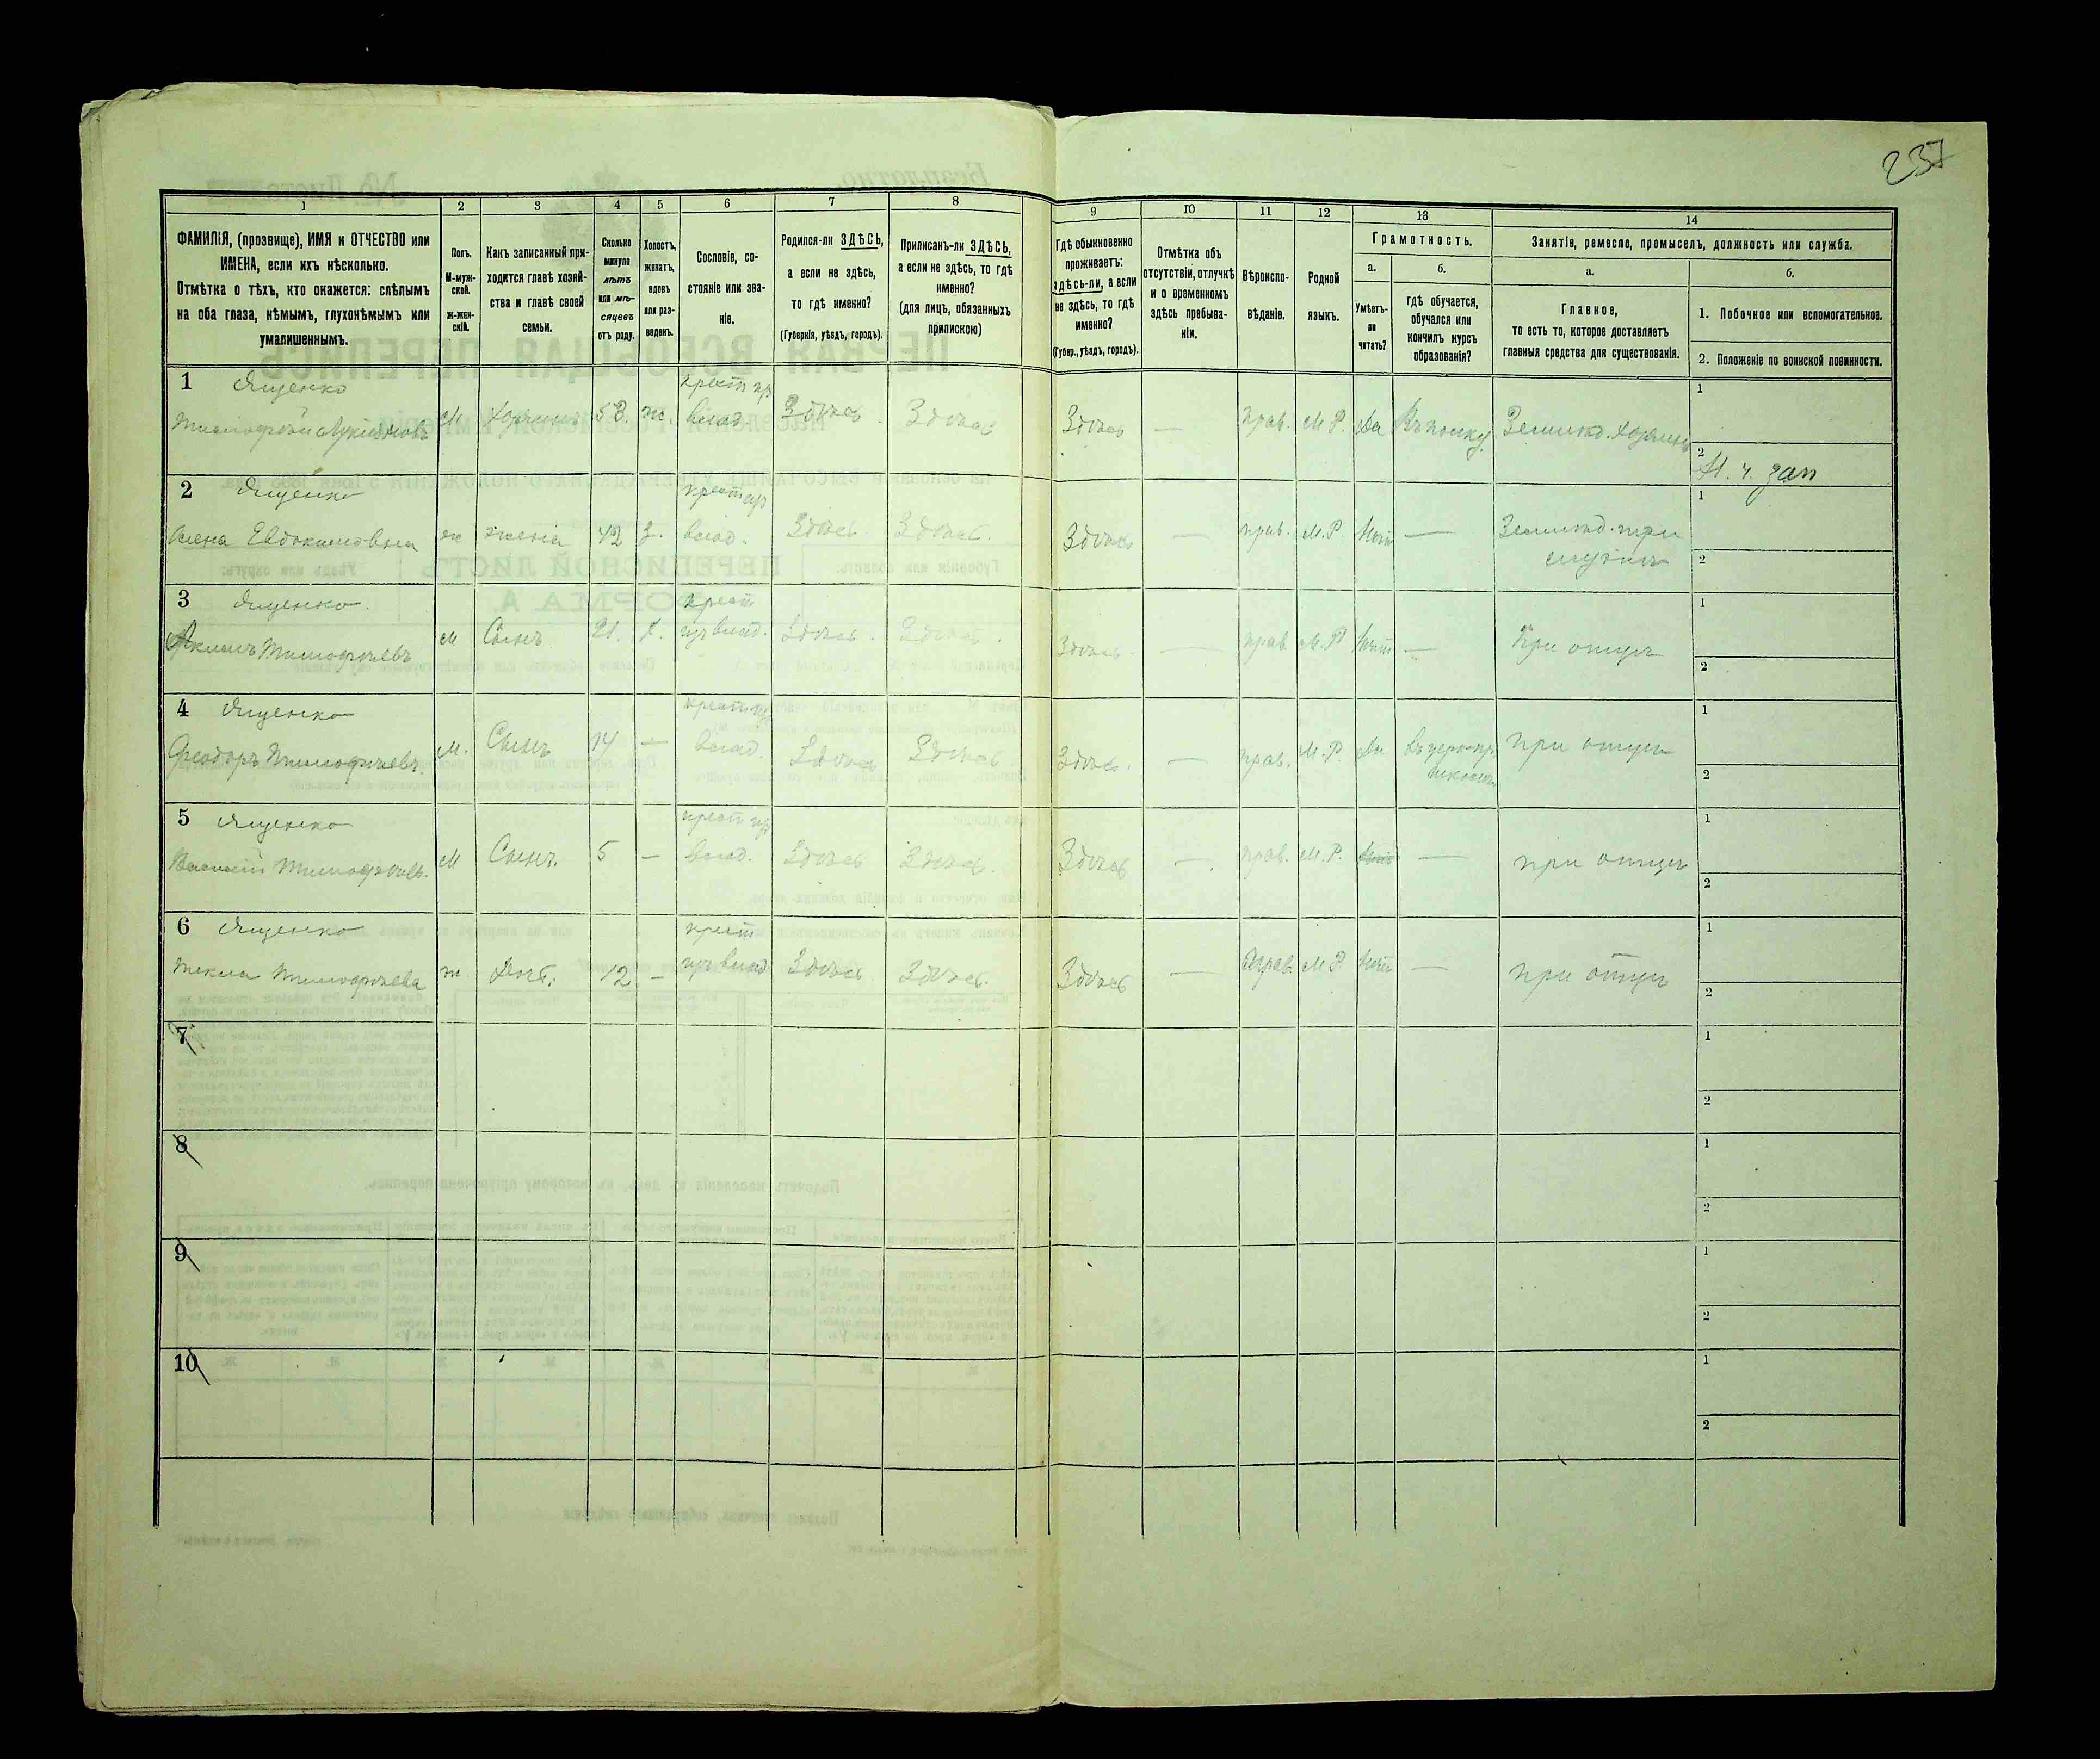 237
1
2
3
4
5
6
7
8
9
10
11
12
13
14
ФАМИЛІЯ, (прозвище), ИМЯ и ОТЧЕСТВО или
ИМЕНА, если ихъ нѣсколько.
Отмѣтка о тѣхъ, кто окажется: слѣпымъ
на оба глаза, нѣмымъ, глухонѣмымъ или
умалишеннымъ.
Полъ.
М-муж-
ской.
Ж-жен-
скій.
Какъ записанный при-
ходится главѣ хозяй-
ства и главѣ своей
семьи.
Сколько
минуло
лѣтъ
или мѣ-
сяцевъ
отъ роду.
Холостъ,
женатъ,
вдовъ
или раз-
веденъ.
Сословіе, со-
стояніе или зва-
ніе.
Родился-ли ЗДѢСЬ,
а если не здѣсь,
то гдѣ именно?
(Губернія, уѣздъ, городъ).
Приписанъ-ли ЗДѢСЬ,
а если не здѣсь, то гдѣ
именно?
(для лицъ, обязанныхъ
припискою)
Гдѣ обыкновенно
проживаетъ:
здѣсь-ли, а если
не здѣсь, то гдѣ
именно?
(Губер., уѣздъ, городъ).
Отмѣтка объ
отсутствіи, отлучкѣ
и о временномъ
здѣсь пребыва-
ніи.
Вѣроиспо-
вѣданіе.
Родной
языкъ.
Грамотность.
а.
Умѣетъ-
ли
читать?
б.
гдѣ обучается,
обучался или
кончилъ курсъ
образованія?
Занятіе, ремесло, промыселъ, должность или служба.
а.
Главное,
то есть то, которое доставляетъ
главныя средства для существованія.
б.
1. Побочное или вспомогательное.
2. Положеніе по воинской повинности.
1 Ященко крест из 1
Тимофей Лукіяновъ М Хозяинъ 58 ж. влад. Здѣсь. Здѣсь Здѣсь — прав. М.Р. Да Въ полку Земледѣ. хозяинъ
2 Н. ч. зап
2 Ященко крест из 1
Елена Евдокимовна ж жена 42 з. влад. Здѣсь Здѣсь. Здѣсь — прав. М.Р. Нѣтъ — Земледѣ. при
мужѣ 2
3 Ященко. крест 1
Тимофѣевъ м Сынъ 21. х. изъ влад. Здѣсь. Здѣсь. Здѣсь. — прав М.Р Нѣтъ — При отцѣ
2
4 Ященко крест из 1
Феодоръ Тимофѣевъ. м. Сынъ 14 — влад. Здѣсь Здѣсь Здѣсь. — прав. М.Р. Да Въ церк-пр. при отцѣ
школѣ 2
5 Ященко крест из 1
Василій Тимофѣевъ. М Сынъ. 5 — влад. Здѣсь Здѣсь. Здѣсь — прав. М.Р. — при отцѣ
2
6 Ященко крест 1
Текла Тимофѣева ж. Дочь. 12 — изъ влад Здѣсь Здѣсь. Здѣсь — прав. М Р Нѣтъ — при отцѣ
2
7
1
2
8
1
2
9
1
2
10
1
2